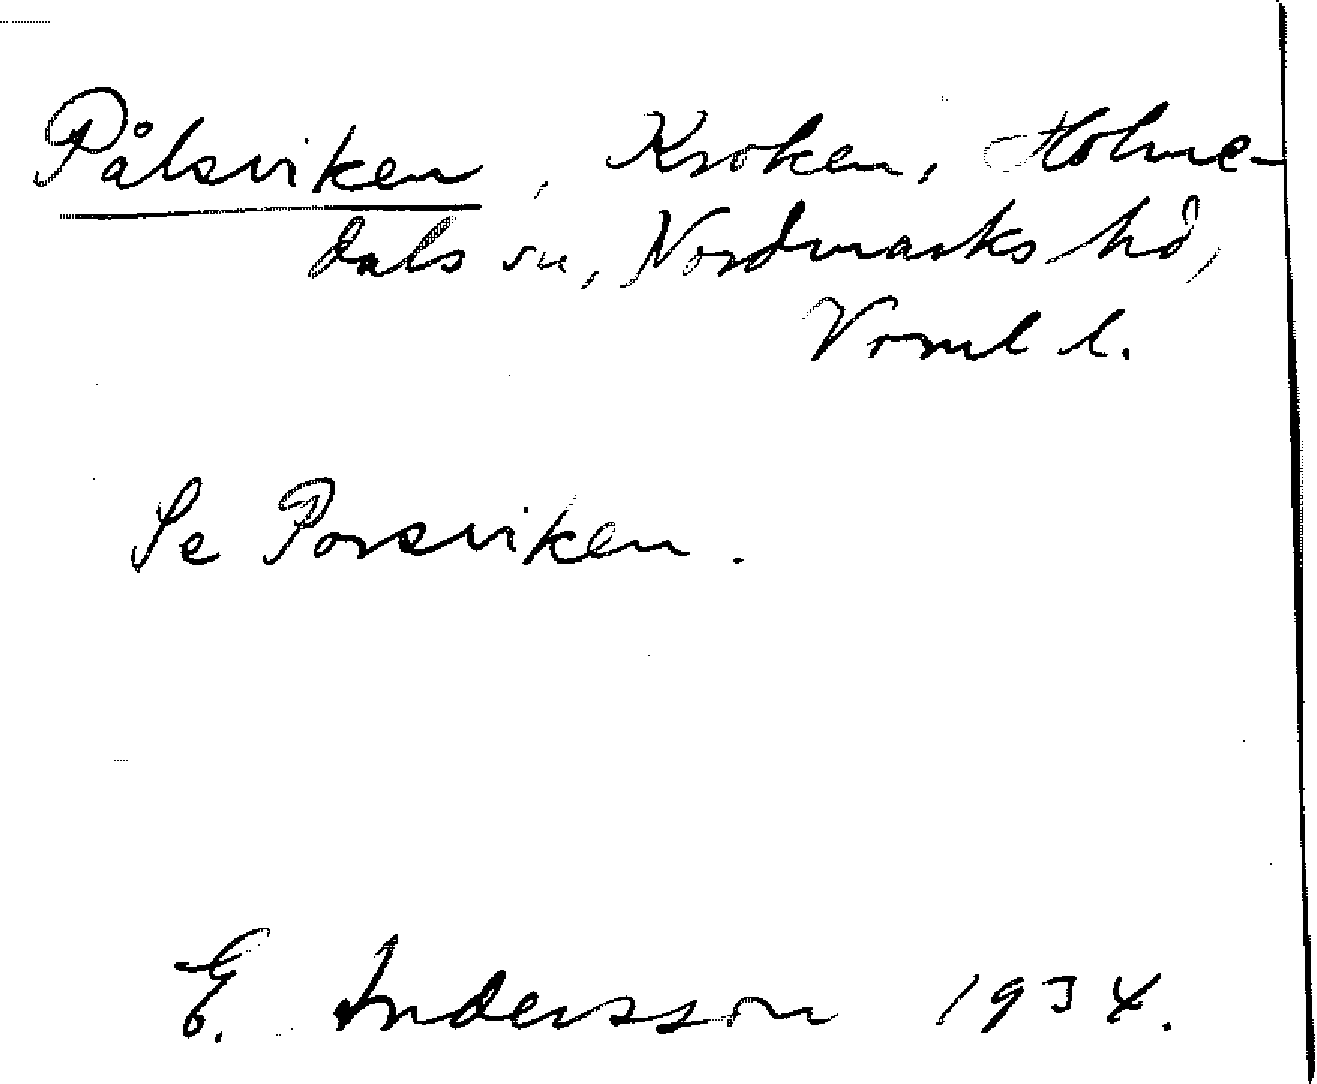 Pålsviken, Kroken, Holme-
dals sn, Nordmarks hd,
Vrml l.
Se Porsviken.
E. Andersson 1934.